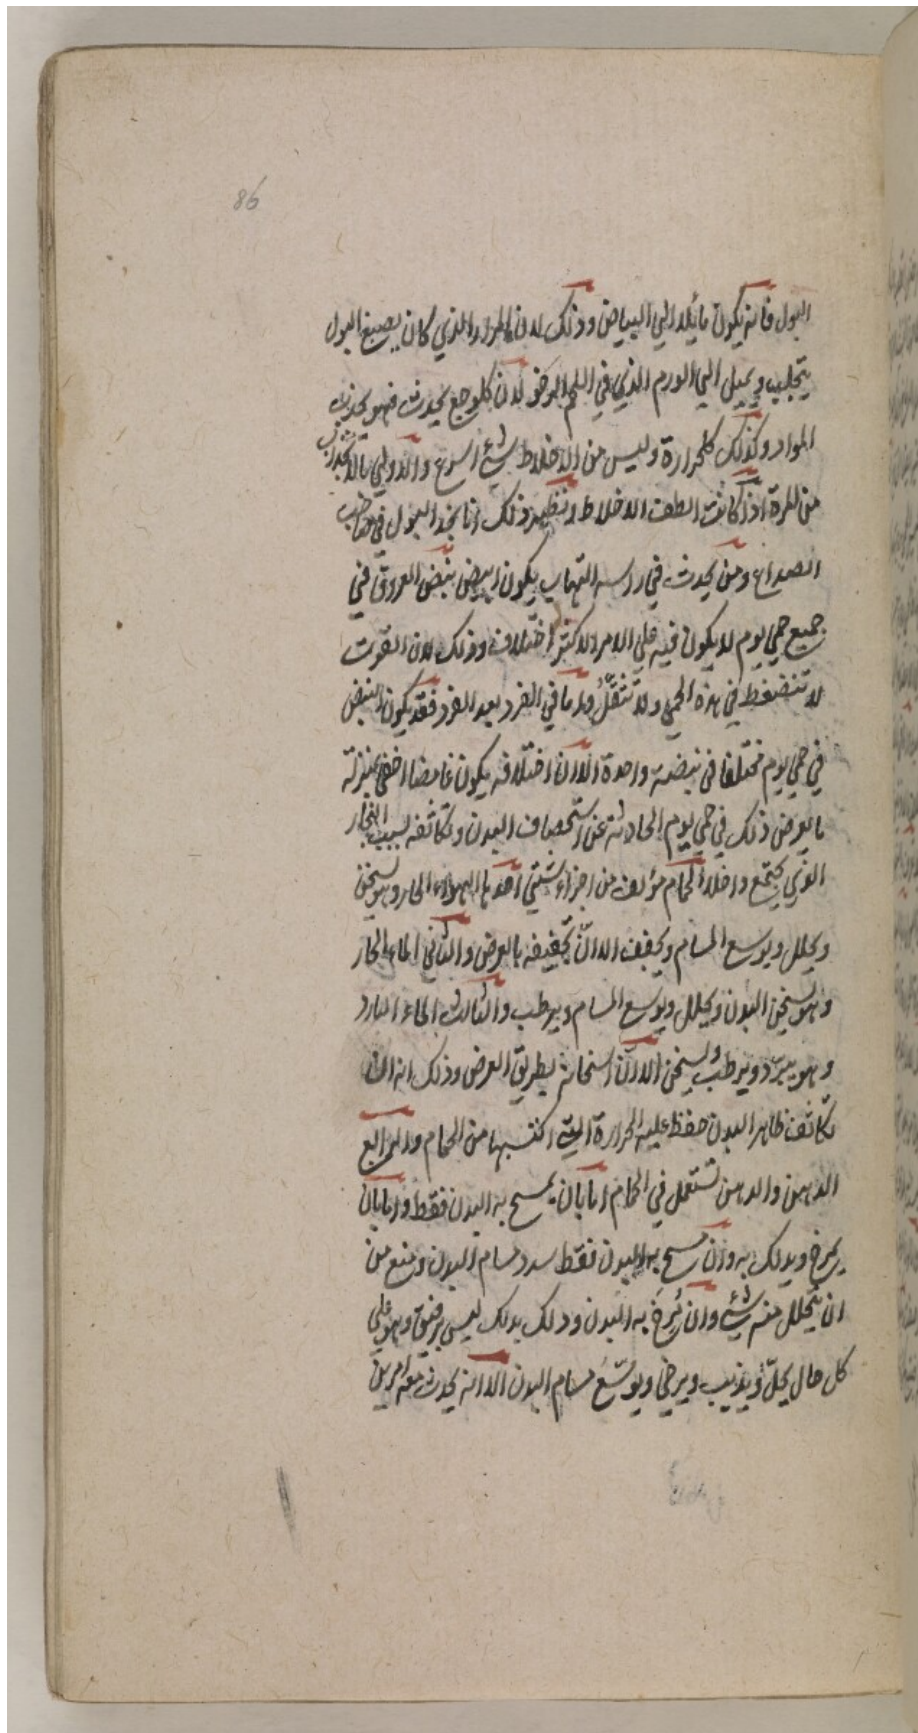 86
البول فانه يكون مائلا الي البياض وذلك لان المرار الذي كان يصبغ البول
يتجلب ويميل الي الورم الذي في اللحم الرخو لان كل وجع يحدث فهو يجذب
المواد وكذلك كل حرارة وليس من الاخلاط شئ اسرع والاولي بالانجذاب
من المرة اذ كانت الطف الاخلاط ونظير ذلك انا نجد البول في صاحب
الصداع ومن يحدث في راسه التهاب يكون ابيض نبض العروق في
جميع حمي يوم لا يكون فيه علي الامر الاكثر اختلاف وذلك لان القوة
لا تنضغط في هذه الحمي ولا تثقل واما في الفرد بعد الفرد فقد يكون النبض
في حمي يوم مختلفا في نبضة واحدة الا ان اختلافه يكون غامضا اخفي بمنزلة
ما يعرض ذلك في حمي يوم الحادثة عن استحصاف البدن وتكاثفه بسبب البخار
الذي يجتمع داخلا الحمام مؤلف من اجزاء شتي احدها الهواء الحار وهو يسخن
ويحلل ويوسع المسام ويجفف الا ان تجفيفه بالعرض والثاني الماء الحار
وهو يسخن البدن ويحلل ويوسع المسام ويرطب والثالث الماء البارد
وهو يبرد ويرطب ويسخن الا ان اسخانه بطريق العرض وذلك انه اذا
تكاثف ظاهر البدن حفظ عليه الحرارة التي اكتسبها من الحمام والرابع
الدهن والدهن تستعمل في الحمام اما بان يمسح به البدن فقط واما بان
يمرخ ويدلك به وان مسح به البدن فقط سدد مسام البدن ومنع من
ان يتحلل منه شئ وان مرخ به البدن ودلك بدلك ليس برفيق وهو علي
كل حال يحل ويذيب ويرخي ويوسع مسام البدن الا انه يحدث معه امرين